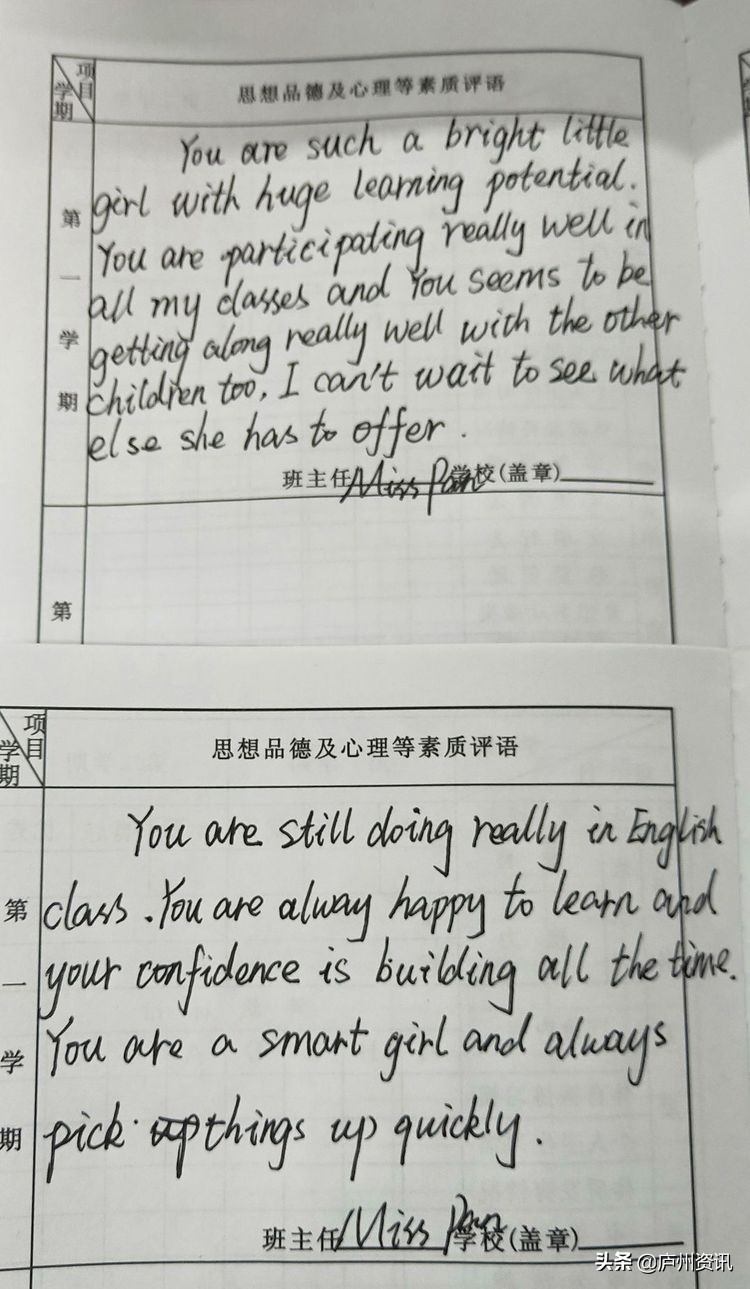 项目
学期
思想品德及心理等素质评语
第一学期
You are such a bright little
girl with huge learning potential.
You are participating really well in
all my classes and You seems to be
getting along really well with the other
children too, I can't wait to see what
else she has to offer.
班主任 Miss Pan 学校(盖章)
第
项目
学期
思想品德及心理等素质评语
第一学期
You are still doing really in English
class. You are alway happy to learn and
your confidence is building all the time.
You are a smart girl and always
pick things up quickly.
班主任 Miss Pan 学校(盖章)
头条 @庐州资讯